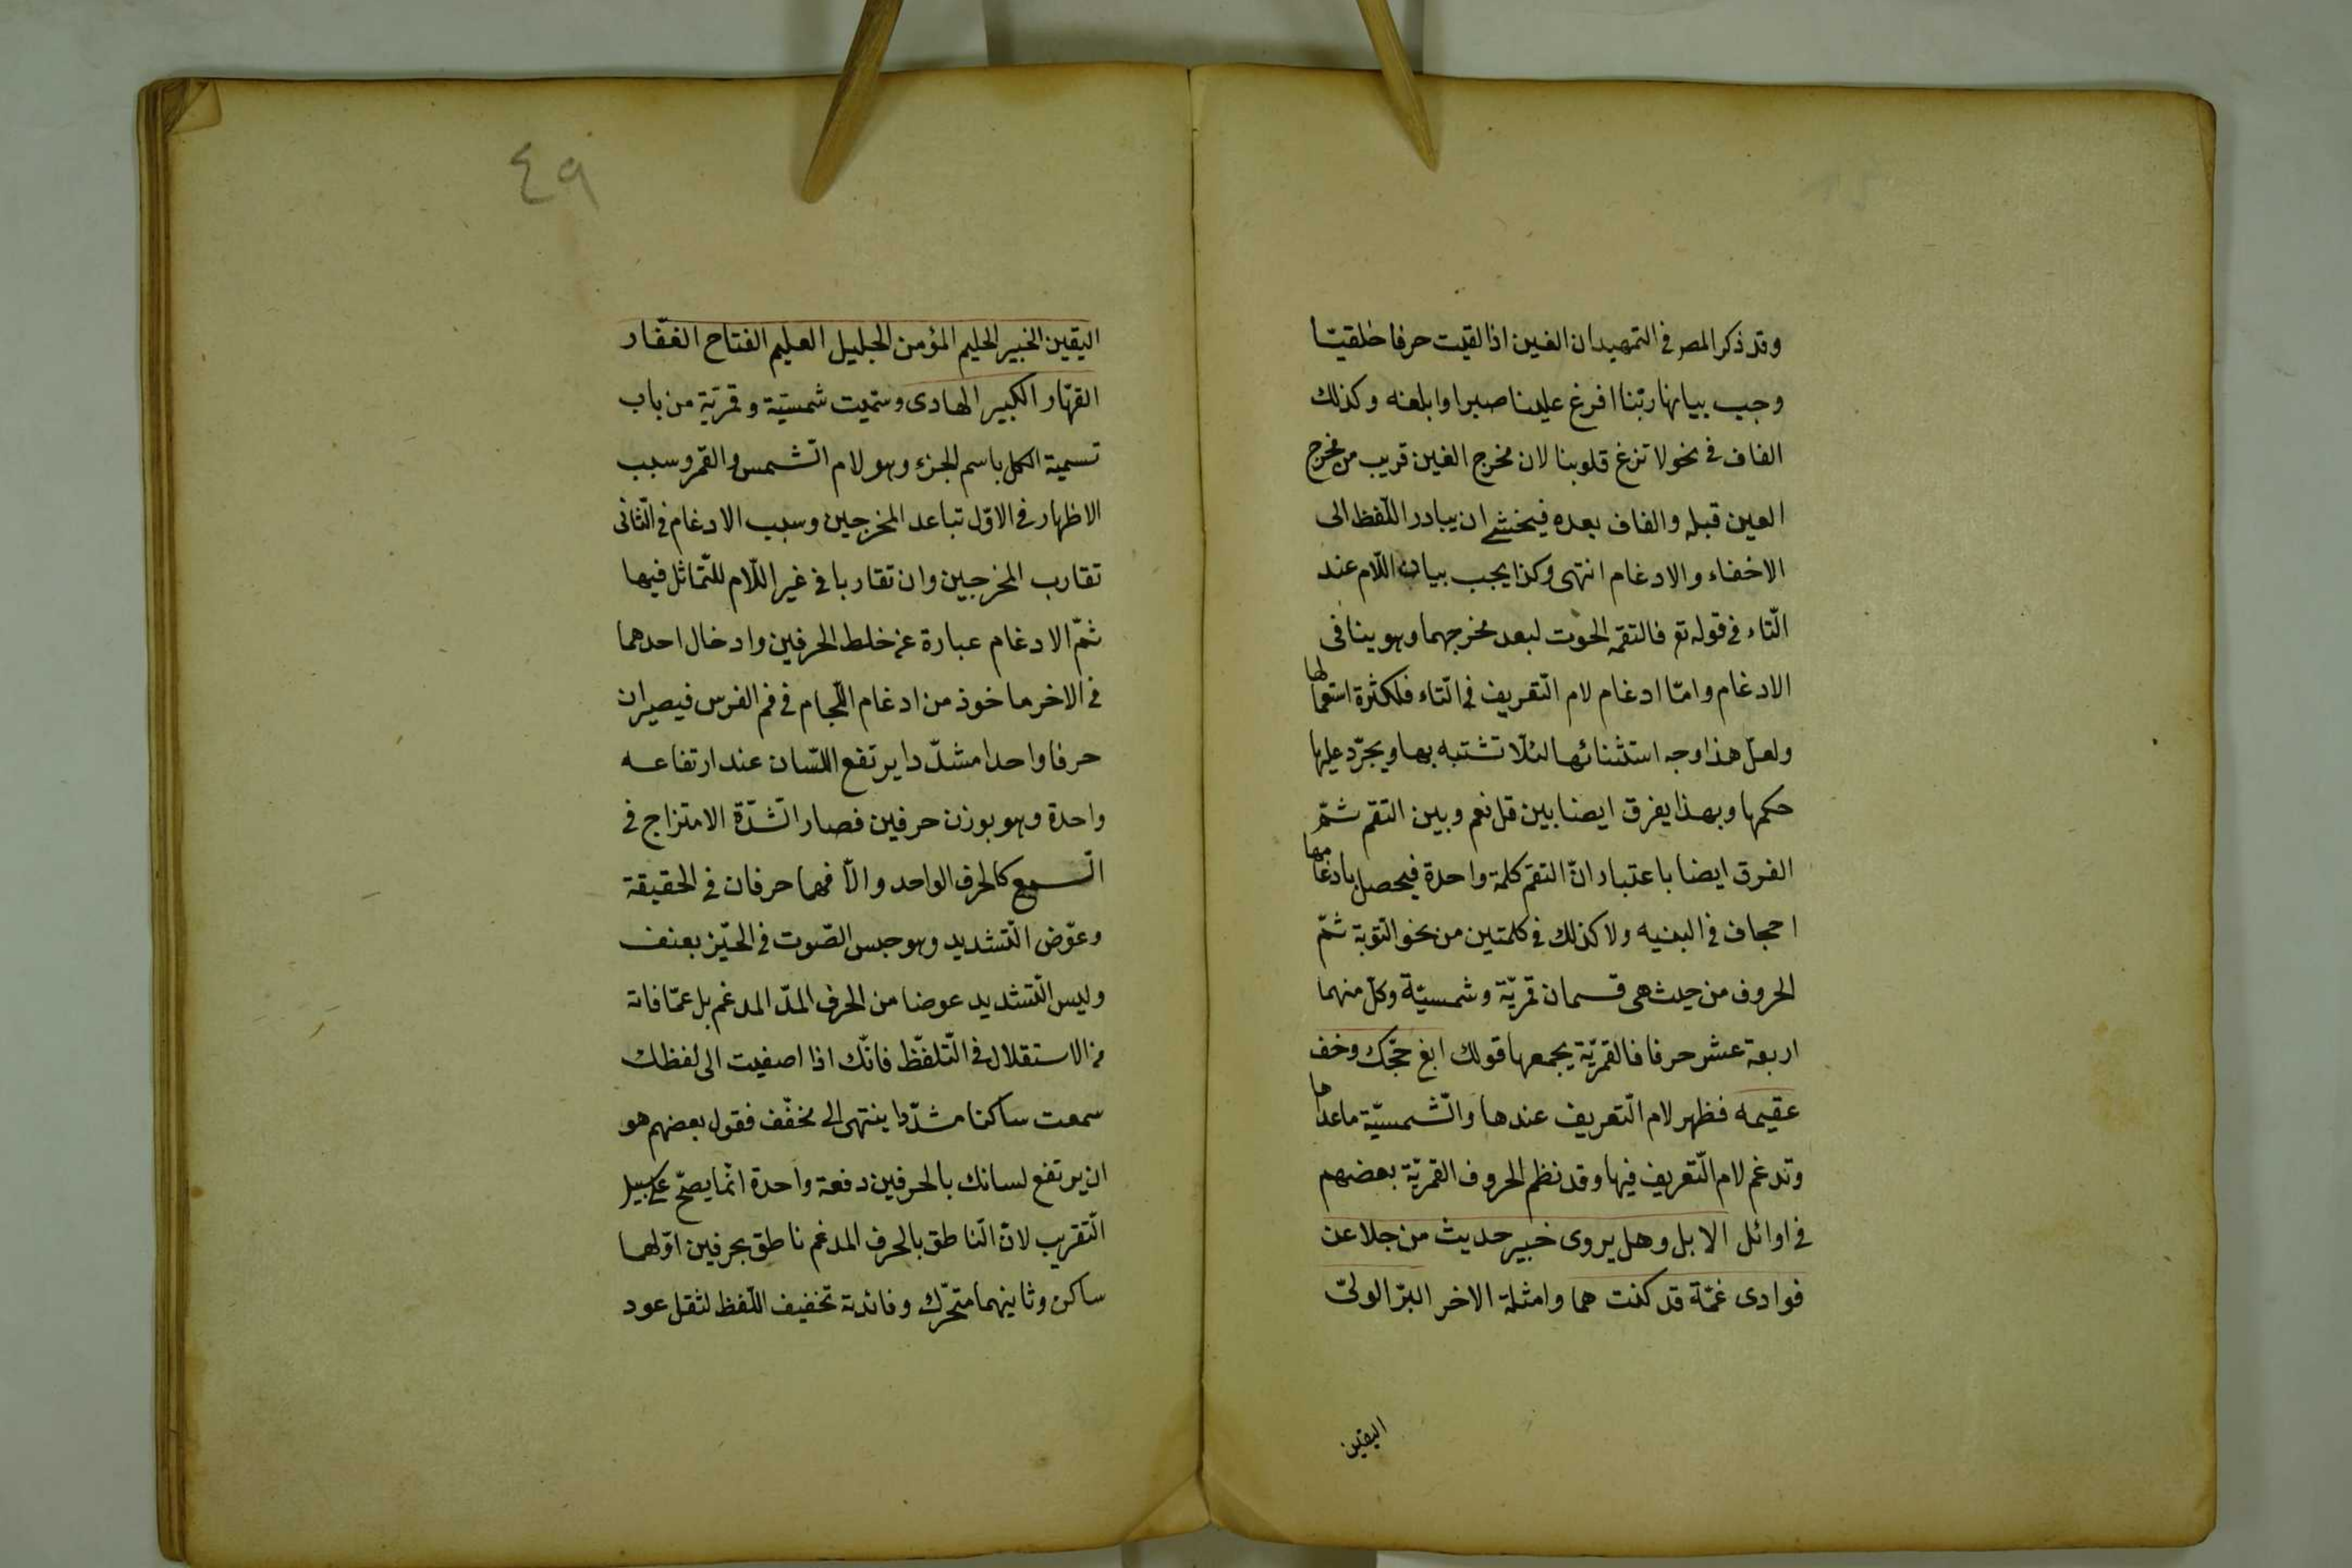 وقد ذكر المصر في التمهيد ان الغين اذا لقيت حرفا حلقيّا
وجب بيانها ربّنا افرغ علينا صبرا وابلغه وكذلك
القاف في نحو لا تزغ قلوبنا لان مخرج الغين قريب من مخرج
العين قبله والقاف بعده فيخشى ان يبادر اللّفظ الى
الاخفاء والادغام انتهى وكذا يجب بيان اللّام عند
التّاء في قوله تع فالتقمه الحوت لبعد مخرجهما وهو ينافى
الادغام وامّا ادغام لام التّعريف في التّاء فلكثرة استعمالها
ولعلّ هذا وجه استثنائها لئلّا تشتبه بها ويجرّد عليها
حكمها وبهذا يفرق ايضا بين قل نعم وبين التقم ثمّ
الفرق ايضا باعتبار انّ التقم كلمة واحدة فيحصل بادغامها
اجحاف في البنيه ولا كذلك في كلمتين من نحو التّوبة ثمّ
الحروف من حيث هى قسمان قمريّة وشمسيّة وكلّ منهما
اربعة عشر حرفا فالقمريّة يجمعها قولك ابغ حجّك وخف
عقيمه فظهر لام التّعريف عندها والشّمسيّة ماعداها
وتدغم لام التّعريف فيها وقد نظم الحروف القمريّة بعضهم
في اوائل الا بل وهل يروى خبير حديث من جلا عن
فوادى غمّة قد كنت هما وامثلة الاخر البرّ الولىّ
اليقين
٤٩
اليقين الخبير الحليم المؤمن الجليل العليم الفتاح الغفّار
القهّار الكبير الهادى وسمّيت شمسيّة وقمريّة من باب
تسمية الكل باسم الجزء وهو لام الشّمس والقمر وسبب
الاظهار في الاوّل تباعد المخرجين وسبب الادغام في الثّانى
تقارب المخرجين وان تقاربا في غير اللّام للتّماثل فيها
ثمّ الادغام عبارة عن خلط الحرفين وادخال احدهما
في الاخر ماخوذ من ادغام اللّجام في فم الفرس فيصيران
حرفا واحدا مشدّدا يرتفع اللّسان عند ارتفاعه
واحدة وهو بوزن حرفين فصار الشّدّة الامتزاج في
السّمع كالحرف الواحد والّا فهما حرفان في الحقيقة
وعوّض التّشديد وهو حبس الصّوت في الحيّز بعنف
وليس التّشديد عوضا من الحرف المدّ المدغم بل عمّا فاته
من الاستقلال في التّلفّظ فانّك اذا اصغيت الى لفظك
سمعت ساكنا مشدّدا ينتهى الى مخفّف فقول بعضهم هو
ان يرتفع لسانك بالحرفين دفعة واحدة انّما يصحّ على سبيل
التّقريب لانّ النّاطق بالحرف المدغم ناطق بحرفين اوّلها
ساكن وثانيهما متحرّك وفائدته تخفيف اللّفظ لثقل عود